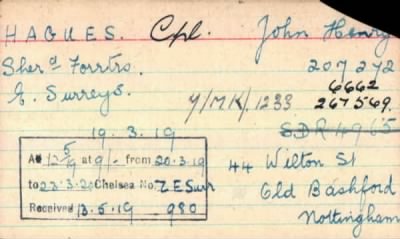 HAGUES. Cpl. John Henry
Sherd Forrtrs. 207272
E. Surreys. 6662
4/MK/1233 267569.
19.3.19 SDR 4965
A 12 5/9 at 9/- from 20.3.19
to 22.3.20 Chelsea No. 7.E Surr
Received 13.5.19 980
44 Wilton St
Old Bashford
Nottingham